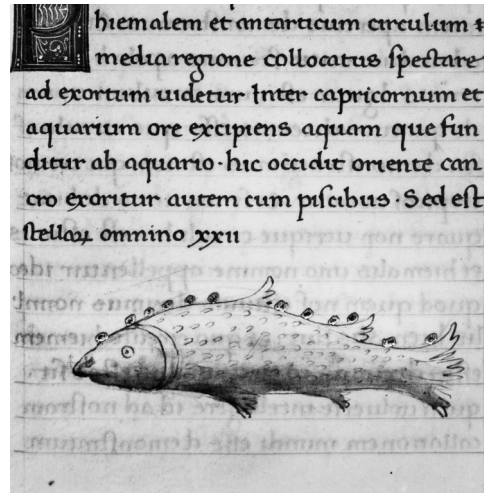 P
hiemalem et antarticum circulum ⁊
media regione collocatus spectare
ad exortum uidetur Inter capricornum et
aquarium ore excipiens aquam que fun
ditur ab aquario · hic occidit oriente can
cro exoritur autem cum piscibus · Sed est
stellaꝝ omnino xxii